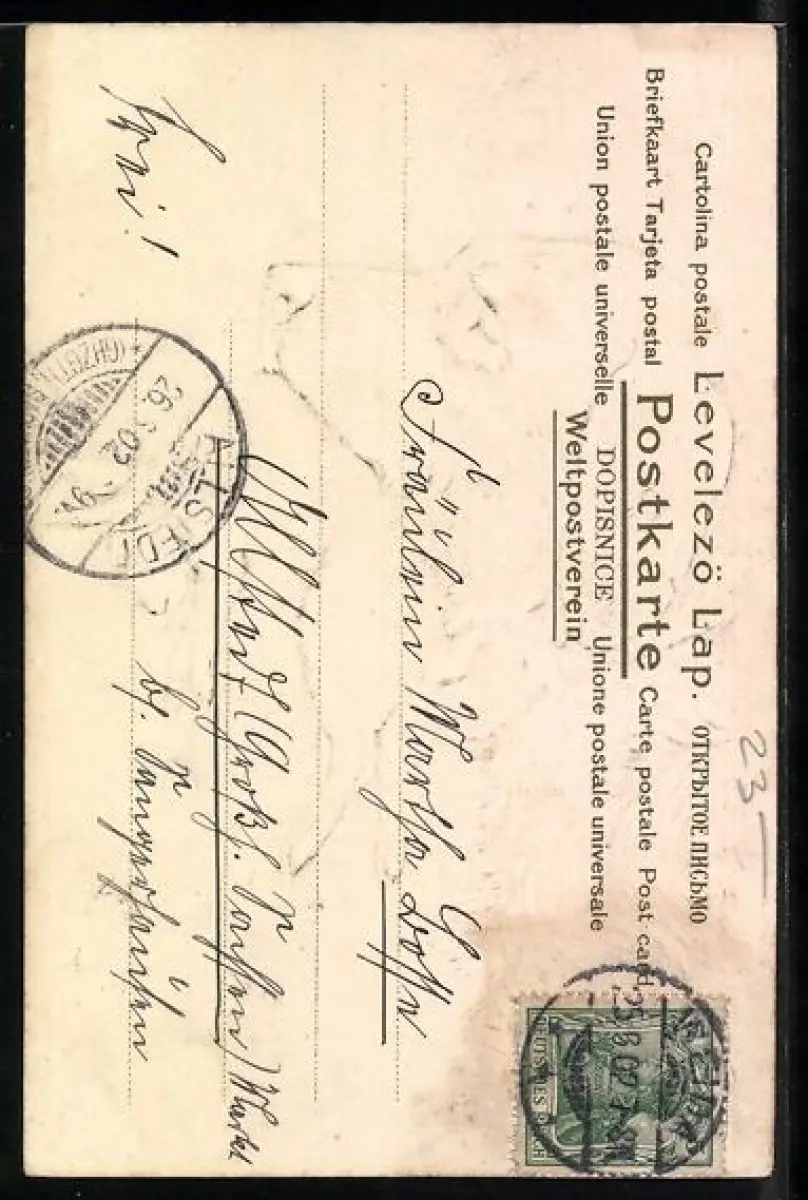 Cartolina postale Levelező Lap. ОТКРЫТОЕ ПИСЬМО
Briefkaart Tarjeta postal Postkarte Carte postale Post card
Union postale universelle DOPISNICE Unione postale universale
Weltpostverein
23-
DEUTSCHES REICH
25.8.02
Fräulein Martha
Allstedt (Großh. Sachsen) Markt
b/. Sangerhausen
Frei!
ALLSTEDT
26. 02